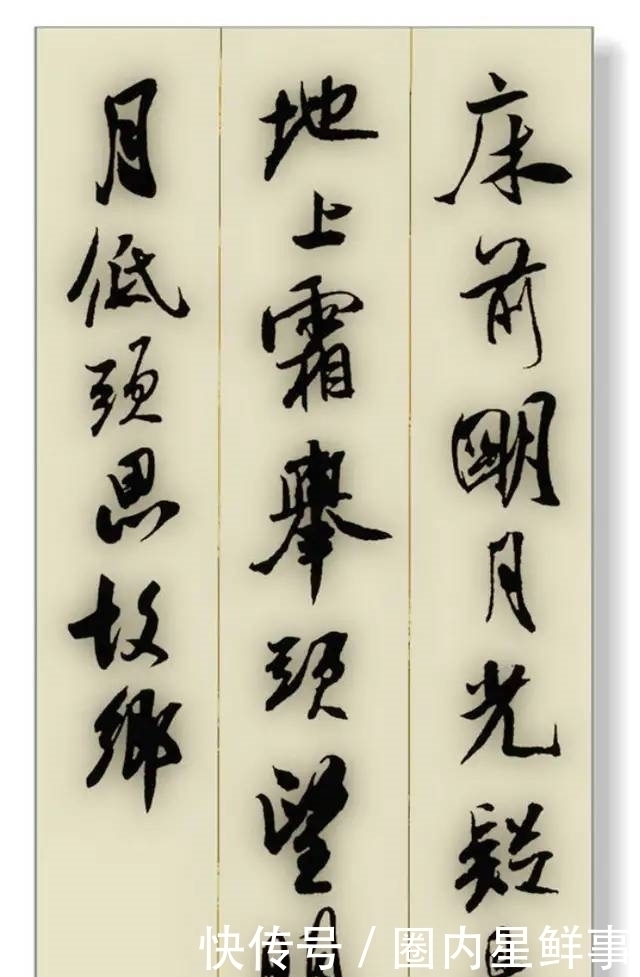 床前明月光疑
地上霜舉頭望
月低頭思故鄉
快传号 / 圈内星鲜事